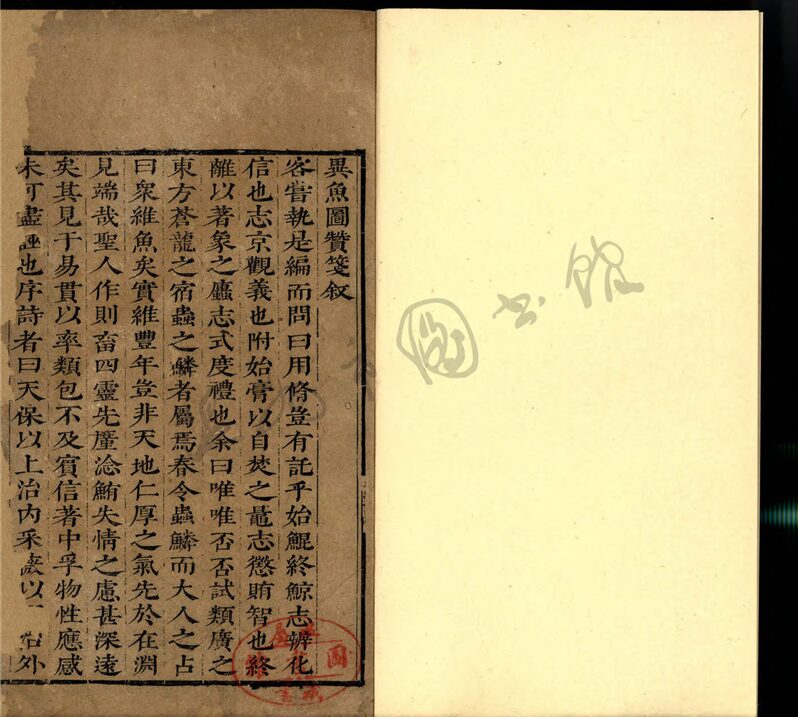 異魚圖贊箋叙
客嘗執是編而問曰用脩豈有託乎始鯤終鯨志辨化
信也志京觀義也附始膏以自焚之鼂志懲賄智也終
離以著象之廬志式度禮也余曰唯唯否否試類廣之
東方蒼龍之宿蟲之鱗者屬焉春令蟲鱗而大人之占
曰衆維魚矣實維豐年豈非天地仁厚之氣先於在淵
見端哉聖人作則畜四靈先廑淰鮪失情之慮甚深遠
矣其見于易貫以率類包不及賓信著中孚物性應感
未可盡誣也序詩者曰天保以上治內采以治外
圖書館